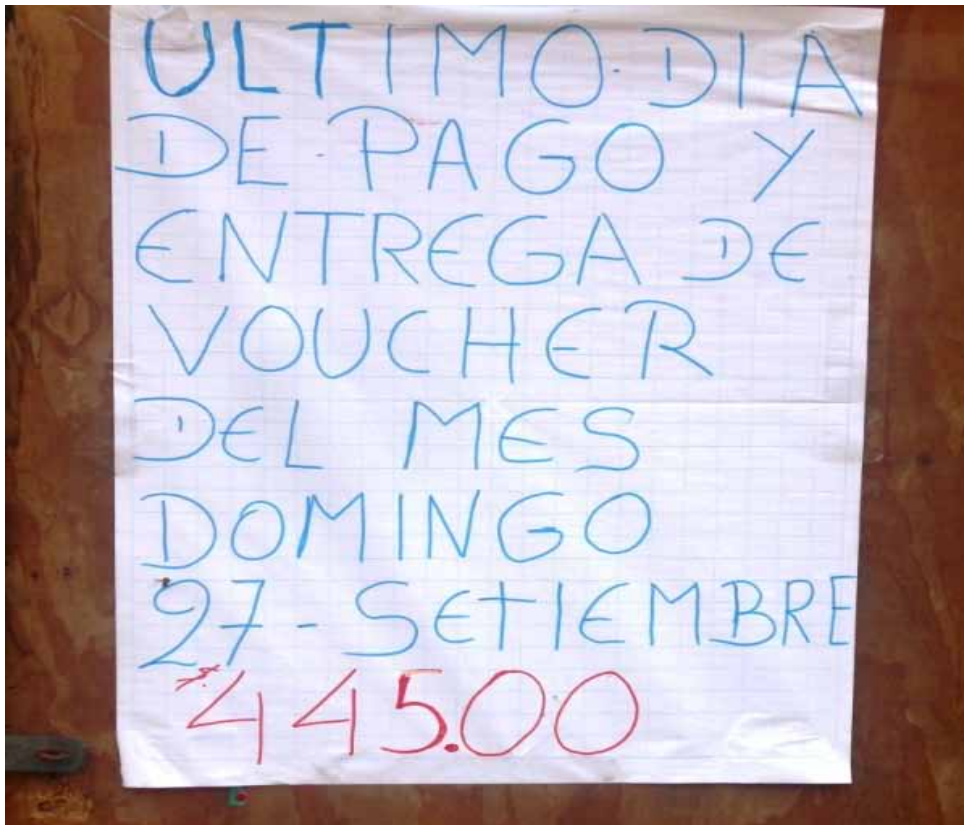 ULTIMO DIA
DE PAGO Y
ENTREGA DE
VOUCHER
DEL MES
DOMINGO
27 - SETIEMBRE
445.00